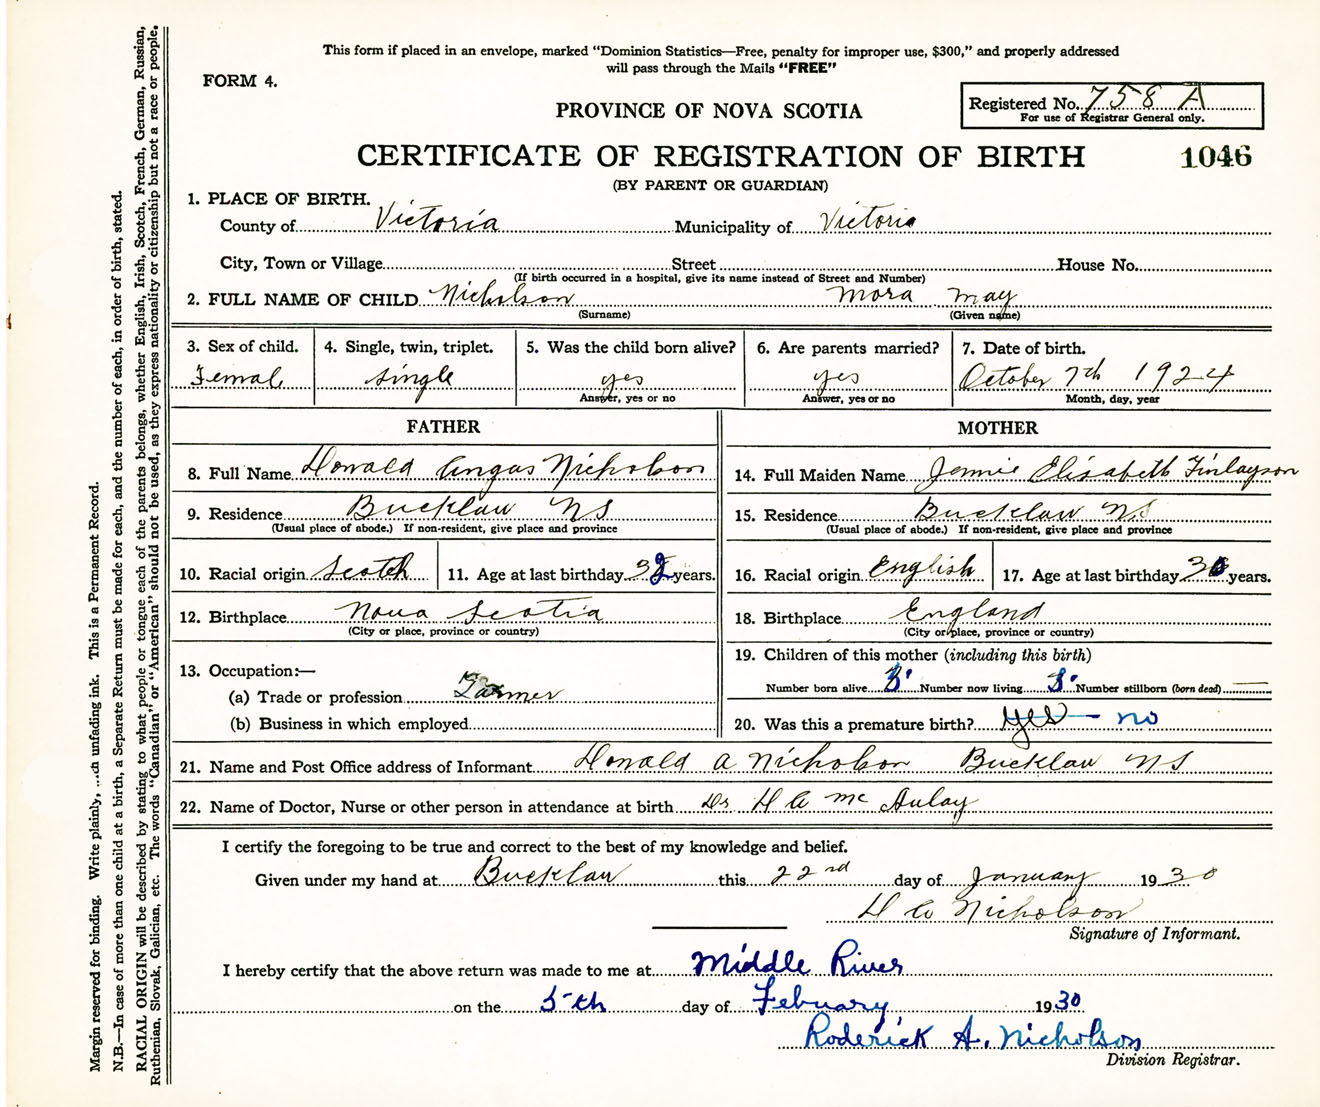 This form if placed in an envelope, marked "Dominion Statistics—Free, penalty for improper use, $300," and properly addressed
will pass through the Mails "FREE"
FORM 4.
Registered No. 758 A
For use of Registrar General only.
PROVINCE OF NOVA SCOTIA
CERTIFICATE OF REGISTRATION OF BIRTH 1046
(BY PARENT OR GUARDIAN)
1. PLACE OF BIRTH.
County of Victoria Municipality of Victoria
City, Town or Village Street House No.
(If birth occurred in a hospital, give its name instead of Street and Number)
2. FULL NAME OF CHILD Nicholson Mora May
(Surname) (Given name)
3. Sex of child. 4. Single, twin, triplet. 5. Was the child born alive? 6. Are parents married? 7. Date of birth.
Female single yes yes October 7th 1924
Answer, yes or no Answer, yes or no Month, day, year
FATHER MOTHER
8. Full Name Donald Angus Nicholson 14. Full Maiden Name Jennie Elisabeth Finlayson
9. Residence Bucklaw NS 15. Residence Bucklaw NS
(Usual place of abode.) If non-resident, give place and province (Usual place of abode.) If non-resident, give place and province
10. Racial origin Scotch 11. Age at last birthday 32 years. 16. Racial origin English 17. Age at last birthday years.
12. Birthplace Nova Scotia 18. Birthplace England
(City or place, province or country) (City or place, province or country)
19. Children of this mother (including this birth)
13. Occupation:—
(a) Trade or profession Farmer Number born alive 3 Number now living 3 Number stillborn (born dead) —
(b) Business in which employed 20. Was this a premature birth? yes — no
21. Name and Post Office address of Informant Donald A Nicholson Bucklaw NS
22. Name of Doctor, Nurse or other person in attendance at birth Dr H A McAulay
I certify the foregoing to be true and correct to the best of my knowledge and belief.
Given under my hand at Bucklaw this 22nd day of January 1930
D A Nicholson
Signature of Informant.
I hereby certify that the above return was made to me at Middle River
on the 5th day of Febuary 1930
Roderick A. Nicholson
Division Registrar.
Margin reserved for binding. Write plainly, unfading ink. This is a Permanent Record.
N.B.—In case of more than one child at a birth, a Separate Return must be made for each, and the number of each, in order of birth, stated.
RACIAL ORIGIN will be described by stating to what people or tongue each of the parents belongs, whether English, Irish, Scotch, French, German, Russian,
Ruthenian, Slovak, Galician, etc. The words "Canadian" or "American" should not be used, as they express nationality or citizenship but not a race or people.